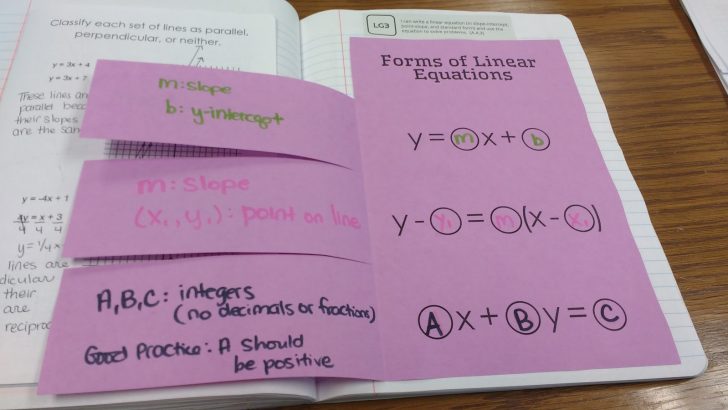 Classify each set of lines as parallel,
perpendicular, or neither.
y = 3x + 4
y = 3x + 7
These lines are
parallel
their slopes
are the
y = -4x + 1
4y = x + 3
4 4 4
y = 1/4 x
lines are
their
are
LG3
I can write a linear equation in slope-intercept,
point-slope, and standard form and use the
equation to solve problems.
m: slope
b: y-intercept
m: slope
(x₁, y₁): point on line
A, B, C: integers
(no decimals or fractions)
Good Practice: A should
be positive
Forms of Linear
Equations
y = mx + b
y - y₁ = m(x - x₁)
Ax + By = C